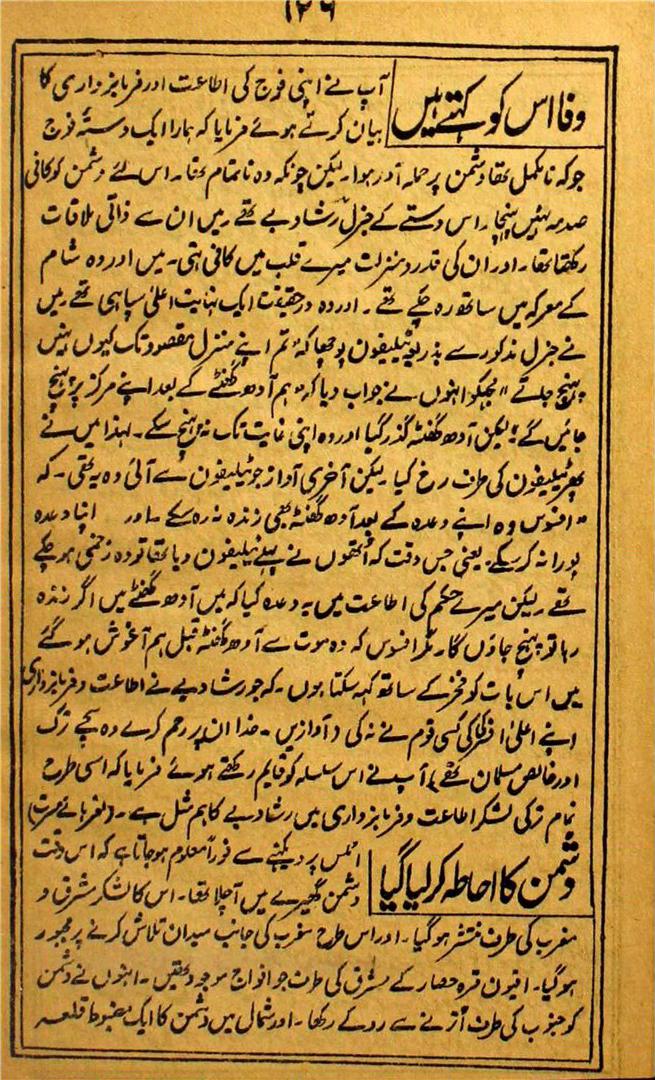 ۱۲۶
وفا اس کو کہتے ہیں
آپ نے اپنی فوج کی اطاعت اور فرمانبرداری کا
بیان کرتے ہوئے فرمایا کہ ہمارا ایک دستۂ فوج
جو کہ نامکمل تھا دشمن پر حملہ آور ہوا۔ لیکن چونکہ وہ ناتمام تھا۔ اس لئے دشمن کو کافی
صدمہ نہیں پہنچا۔ اس دستے کے جنرل رشاد بے تھے۔ میں ان سے ذاتی ملاقات
رکھتا تھا۔ اور ان کی قدر و منزلت میرے قلب میں کافی تھی۔ میں اور وہ شام
کے معرکہ میں ساتھ رہ چکے تھے۔ اور وہ درحقیقت ایک نہایت اعلیٰ سپاہی تھے میں
نے جنرل مذکور سے بذریعہ ٹیلیفون پوچھا کہ "تم اپنے منزل مقصود تک کیوں نہیں
پہنچ جاتے" مجھکو انہوں نے جواب دیا کہ "ہم آدھ گھنٹے کے بعد اپنے مرکز پر پہنچ
جائیں گے" لیکن آدھ گھنٹہ گذر گیا اور وہ اپنی غایت تک نہ پہنچ سکے۔ لہذا میں نے
پھر ٹیلیفون کی طرف رخ کیا لیکن آخری آواز جو ٹیلیفون سے آئی وہ یہ تھی۔ کہ
"افسوس وہ اپنے وعدہ کے بعد آدھ گھنٹہ بھی زندہ نہ رہ سکے۔ اور اپنا وعدہ
پورا نہ کر سکے" یعنی جس وقت کہ انھوں نے پہلے ٹیلیفون دیا تھا تو وہ زخمی ہو چکے
تھے۔ لیکن میرے حکم کی اطاعت میں یہ وعدہ کیا کہ میں آدھ گھنٹے میں اگر زندہ
رہا تو پہنچ جاؤں گا۔ مگر افسوس کہ وہ موت سے آدھ گھنٹہ قبل ہم آغوش ہو گئے
میں اس بات کو فخر کے ساتھ کہہ سکتا ہوں۔ کہ جو رشاد بے نے اطاعت و فرمانبرداری
اپنے اعلیٰ افسر کی کی کسی قوم نے نہ کی
اور خالص مسلمان تھے) آپ نے اس سلسلہ کو قایم رکھتے ہوئے فرمایا کہ اسی طرح
تمام ترکی لشکر اطاعت و فرمانبرداری میں رشاد بے کا ہم مثل ہے۔
دشمن کا احاطہ کر لیا گیا
اٹلس پر دیکھنے سے فوراً معلوم ہو جاتا ہے کہ اس وقت
دشمن گھیرے میں آ چلا تھا۔ اس کا لشکر مشرق و
مغرب کی طرف منتشر ہو گیا۔ اور اس طرح مغرب کی جانب میدان تلاش کرنے پر مجبور
ہو گیا۔ افیون قرہ حصار کے مشرق کی طرف جو افواج موجود تھیں۔ انہوں نے دشمن
کو جنوب کی طرف اُترنے سے روکے رکھا۔ اور شمال میں دشمن کا ایک مضبوط قلعہ